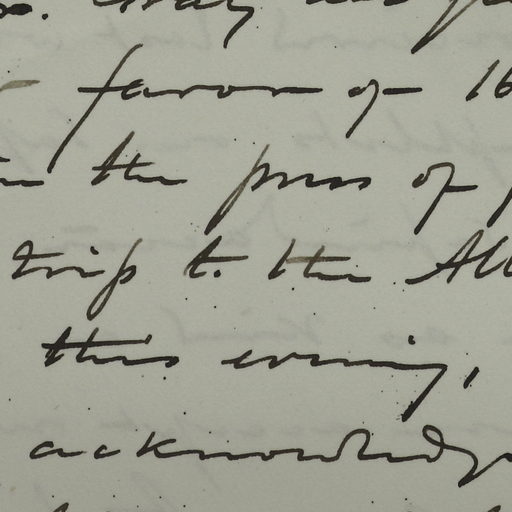 favor of 16
the press of
trip to the All
this evening,
acknowledg